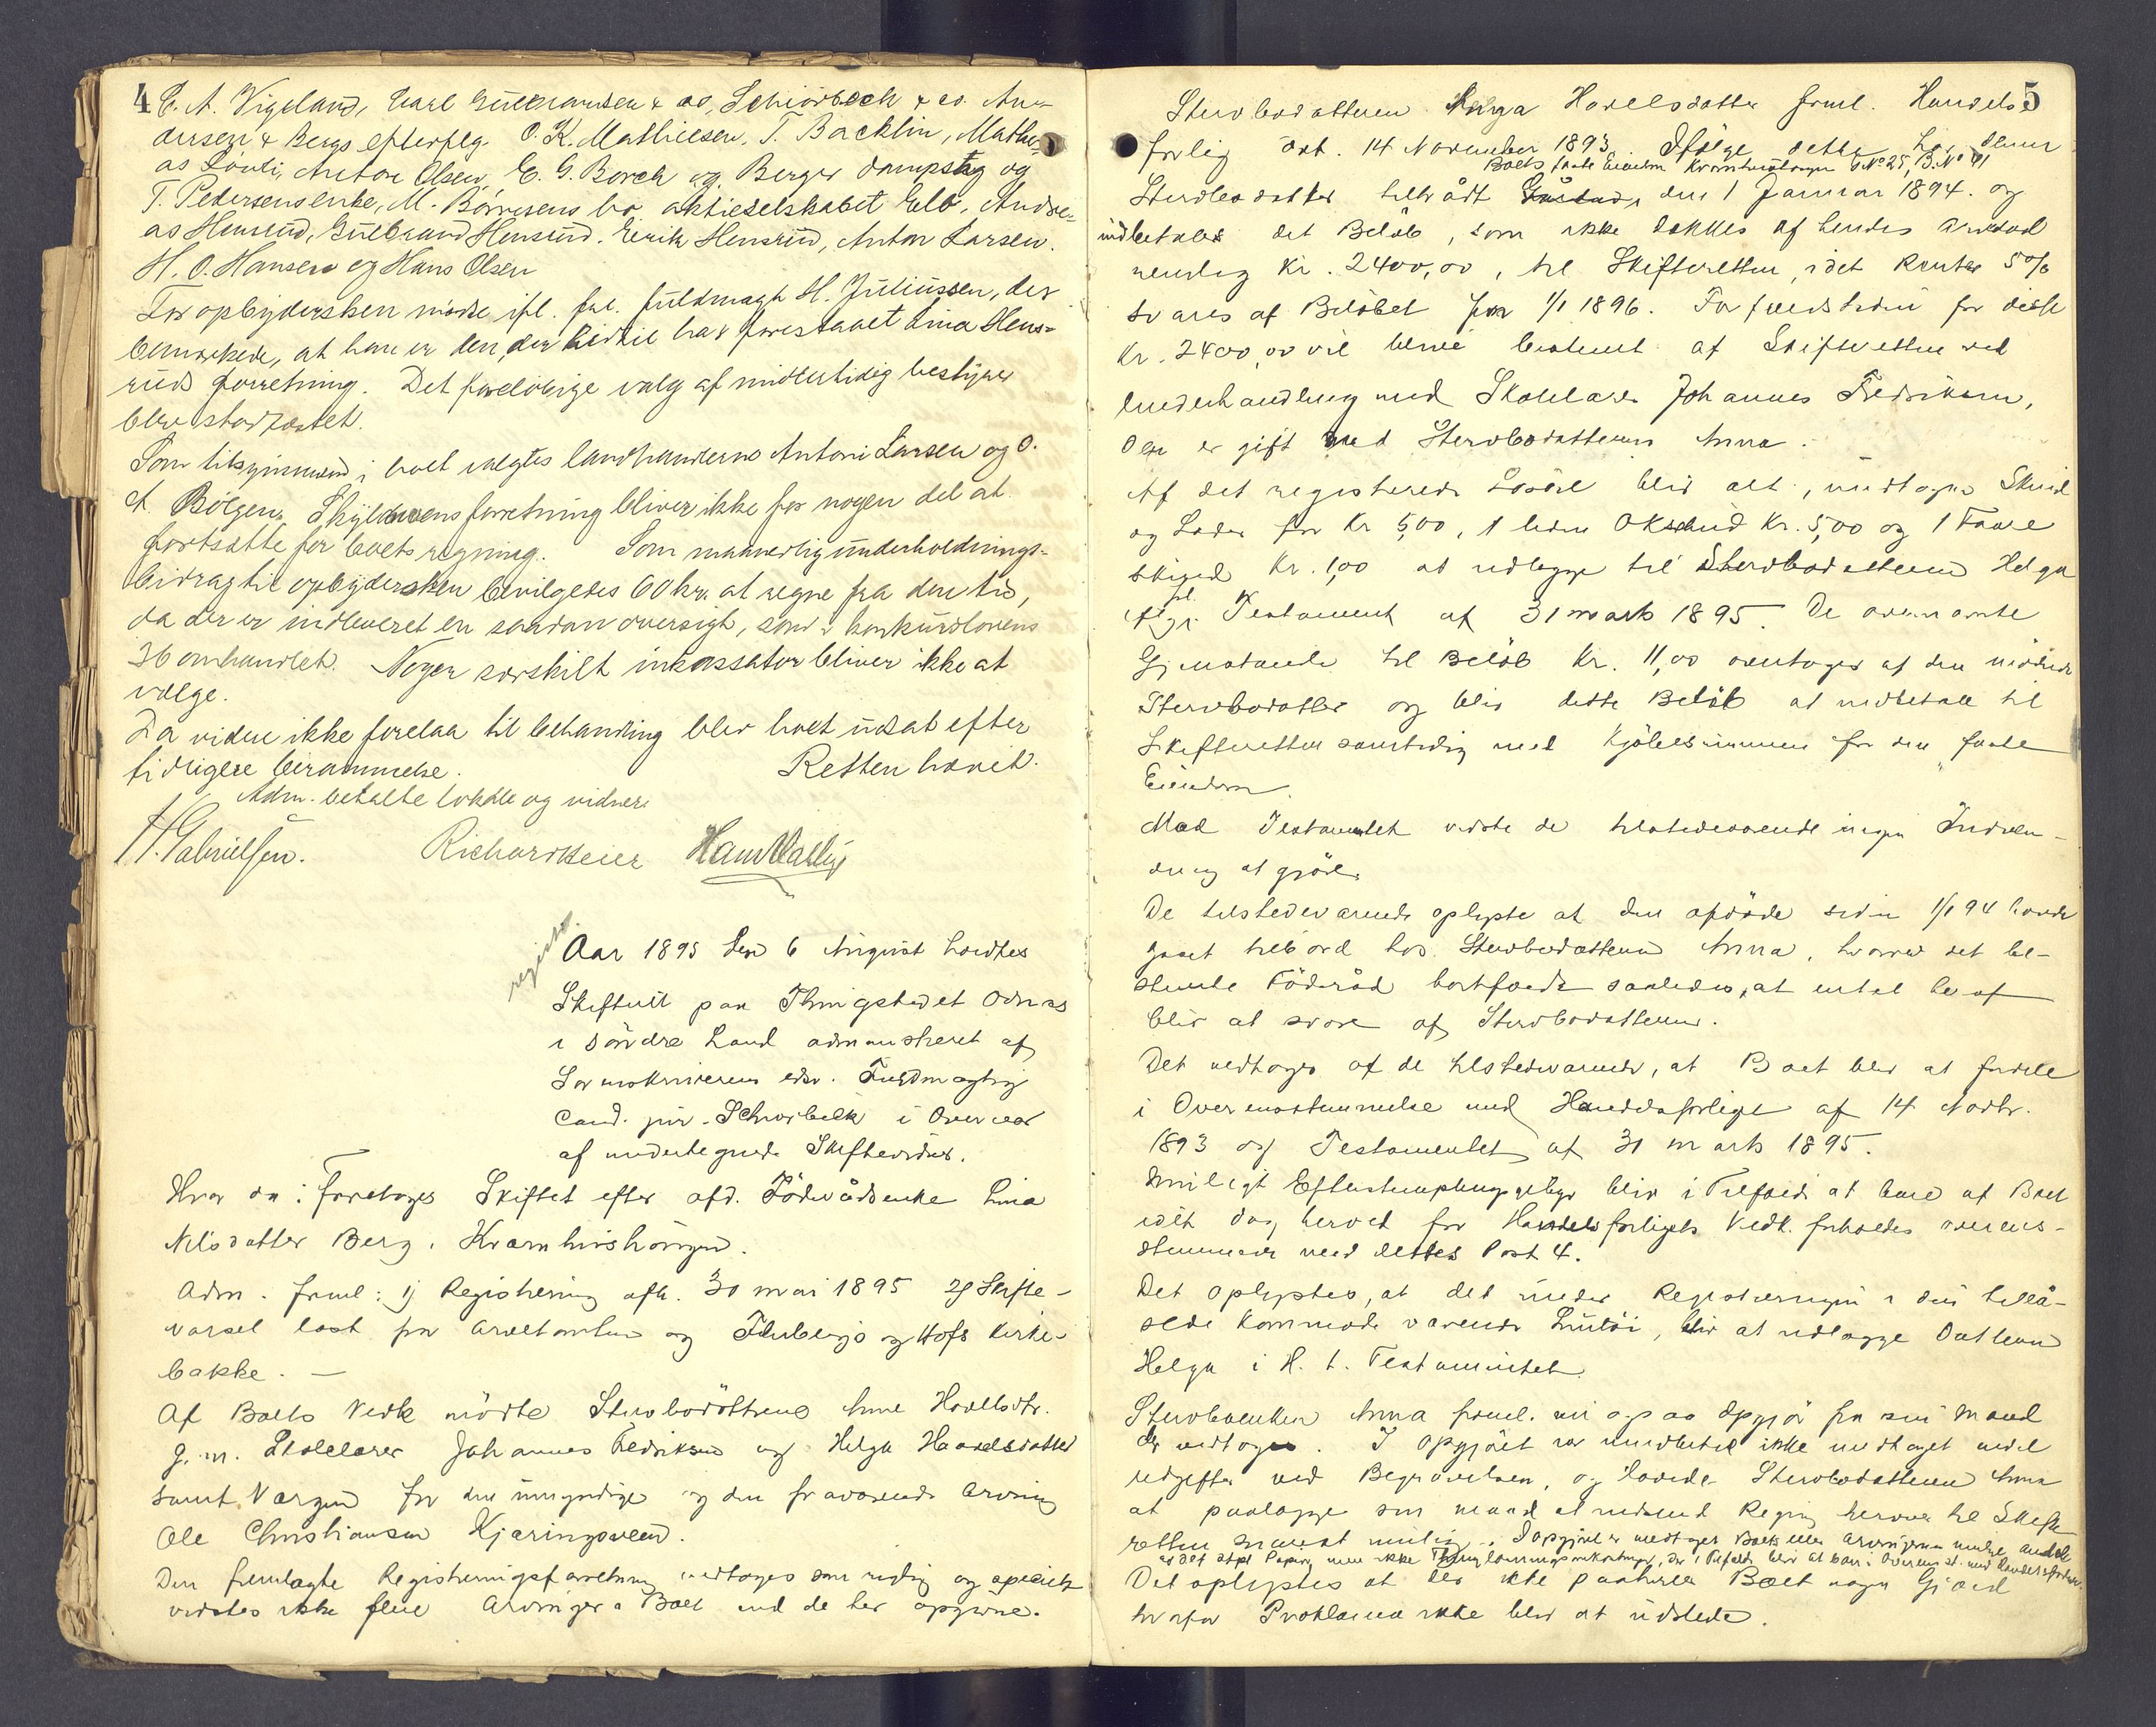 4 C. A. Vigeland, Carl Gulbransen & co, Schiörbeck & co. An-
dersen & Bergs efterflg. O. K. Mathiesen, T. Backlin, Mathi-
as Louli, Anton Olsen, C. G. Borch og Berger dampsag og
T. Pedersens enke, M. Börresens bo aktieselskabet Elb, Andre-
as Hensrud, Gulbrand Hensrud. Erik Hensrud, Anton Larsen.
H. O. Hansen og Hans Olsen
For opbydersken mødte ifl. ful. fuldmagt H. Juliussen, der
bemærkede, at han er den, der hidtil har forestaaet Lina Hens-
ruds forretning. Det foreløbige valg af midlertidig bestyrer
blev stadfæstet.
Som tilsynsmænd i boet valgtes landhandlerne Antoni Larsen og O.
A. Bölgen. Skyldnerens forretning bliver ikke for nogen del at
fortsætte for boets regning. Som maanedlig underholdnings-
bidrag til opbydersken bevilgedes 60 kr. at regne fra den tid,
da der er indleveret en saadan oversigt, som i konkurslovens
36 omhandlet. Nogen særskilt inkassator bliver ikke at
vælge.
Da videre ikke forelaa til behandling blev boet udsat efter
tidligere berammelse. Retten hævet.
Adm. betalte lokale og vidner.
H. Gabrielsen. Richard Beier
regist.
Aar 1895 den 6 August holdtes
Skifteret paa Thingstedet Odnæs
i Söndre Land administreret af
Sorenskriverens edsv. Fuldmægtig
Cand. jur. Schiörbeck i Overvær
af undertegnede Skiftevidner.
Hvor da: Foretoges Skiftet efter afd. Föderådsenke Lina
Nilsdatter Berg, Kværnhushaugen.
Adm. freml: 1) Registrering afh. 30 mai 1895 2) Skifte-
varsel læst for arvetomten og Fluberg og Hofs Kirke-
bakke. —
Af Boets Vedk mödte Stervbodöttrene Anne Hovelsdtr.
g. m. Skolelærer Johannes Fredriksen og Helga Haavelsdatter
samt Vergen for den umyndige og den fraværende Arving
Ole Christiansen Kjæringsveen.
Den fremlagte Registreringsforretning vedtoges som rigtig og specielt
vidstes ikke flere Arvinger i Boet end de her opgivne.
5
Stervbodatteren Helga Hovelsdatter freml. Handels
forlig dat. 14 November 1893. Ifölge dette har denne
Boets faste Eiendom Kværnhushaugen G.No 25, B.No 11
Stervbodatter tiltrådt den 1 Januar 1894. og
indbetales det Belöb, som ikke dækkes af hendes arvelod
nemlig Kr. 2400,00, til Skifteretten, idet Renter 5%
svares af Belöbet fra 1/1 1896. Forfaldstiden for disse
Kr. 2400,00 vil blive bestemt af Skifteretten ved
Underhandling med Skolelærer Johannes Fredriksen,
der er gift med Stervbodatteren Anna.
Af det registrerede Lösöre blir alt, undtagen Skind
og Læder for Kr 5,00, 1 liden Oksehud Kr. 5,00 og 1 Faare
skind Kr. 1,00 at udlægge til Stervbodatteren Helga
ifl. Testament af 31 marts 1895. De ovennævnte
Gjenstande til Belöb Kr. 11,00 overtages af den mödende
Stervbodatter og blir dette Belöb at indbetale til
Skifteretten samtidig med Kjöbesummen for den faste
Eiendom.
Mod Testamentet vidste de tilstedeværende ingen Indven-
ding at gjöre.
De tilstedeværende oplyste at den afdöde siden 1/1 94 havde
gaaet tilbords hos Stervbodatteren Anna, hvorved det be-
stemte Föderåd bortfaldt saaledes, at intet heraf
blir at svare af Stervbodatteren.
Det vedtoges af de tilstedeværende, at Boet blir at fordele
i Overensstemmelse med Handelsforliget af 14 Novbr.
1893 og Testamentet af 31 marts 1895.
Muligt Efterstemplingsgebyr blir i Tilfælde at bære af Boet
idet dog herved for Handelsforligets Vedk. forholdes overens-
stemmende med dettes Post 4.
Det oplystes, at det under Registreringen i den tillå-
sede Kommode værende Lintöi, blir at udlægge Datteren
Helga i H. t. Testamentet.
Stervboenken Anna freml. opgjör fra sin Mand
der vedtoges. I opgjöret var imidlertid ikke medtaget endel
udgifter ved Begravelsen, og lovede Stervbodatteren Anna
at paalægge sin mand at indsend Regning herover til Skifte
retten snarest mulig. I opgjöret er medtaget Boets eller arvingernes andel
af det stpl Papir, men ikke Thinglæsningsomkostninger, der i Tilfælde blir at bære i Overensst. med Handelsforliget.
Det oplystes at der ikke paahviler Boet nogen Gjæld
hvorfor Proklama ikke blir at udstede.